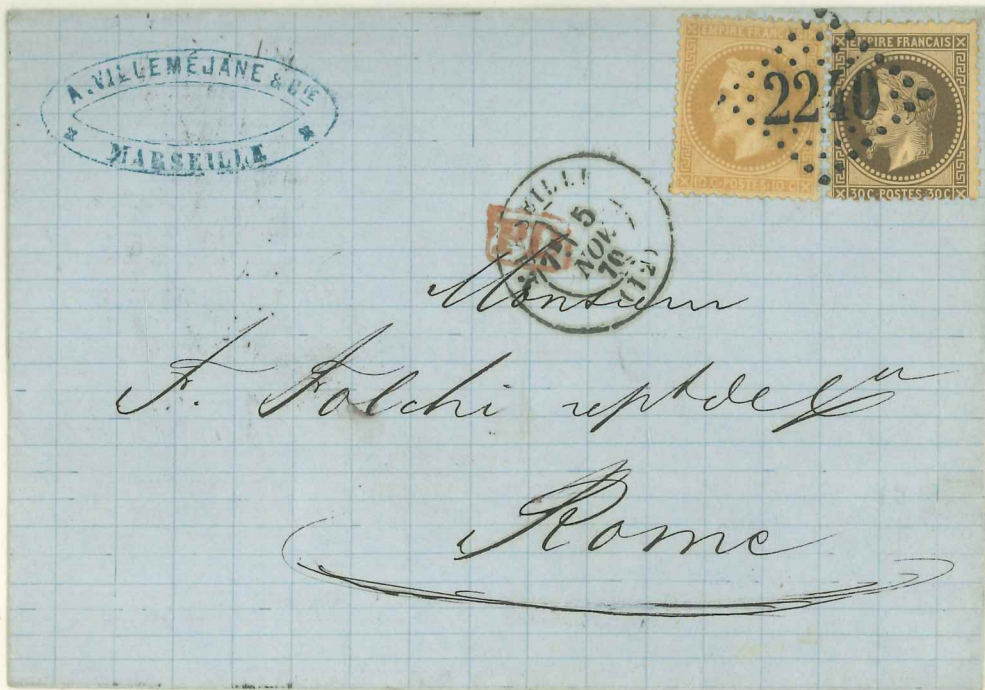 A. VILLEMÉJANE & CIE
MARSEILLE
EMPIRE FRANC
10 C · POSTES · 10 C
EMPIRE FRANÇAIS
30 C · POSTES · 30 C
2240
5
NOV.
70
(12)
Monsieur
F. Folchi
Rome